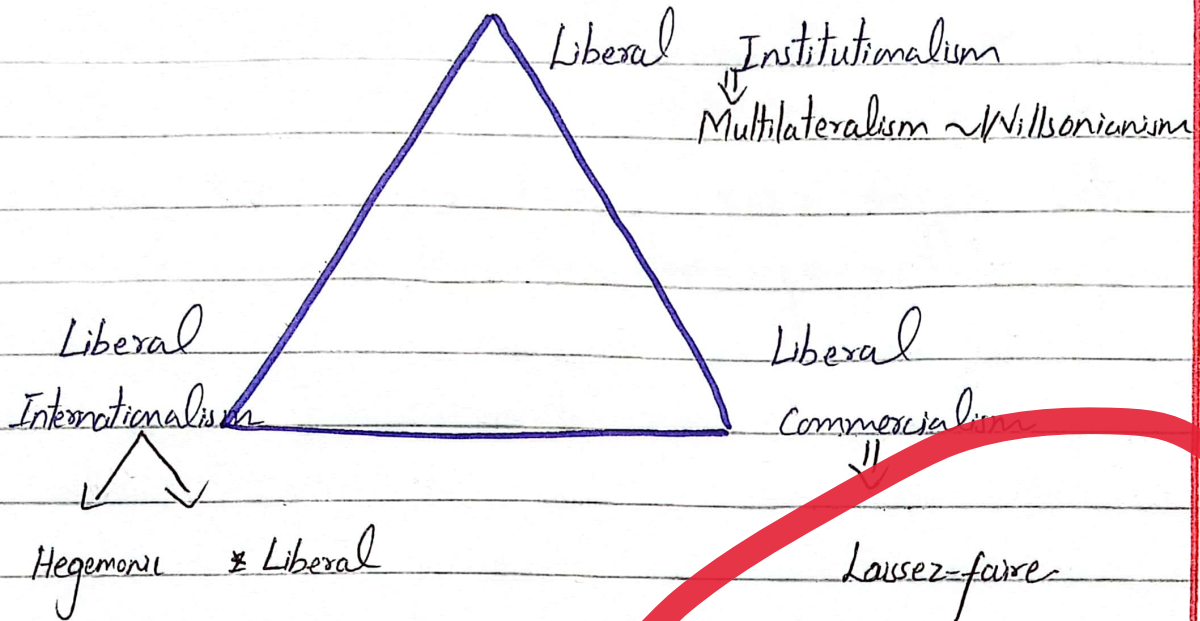 Liberal Institutionalism
⇓
Multilateralism ~ Willsonianism
Liberal
Internationalism
Liberal
Commercialism
⇓
Hegemonic * Liberal
Laissez-faire